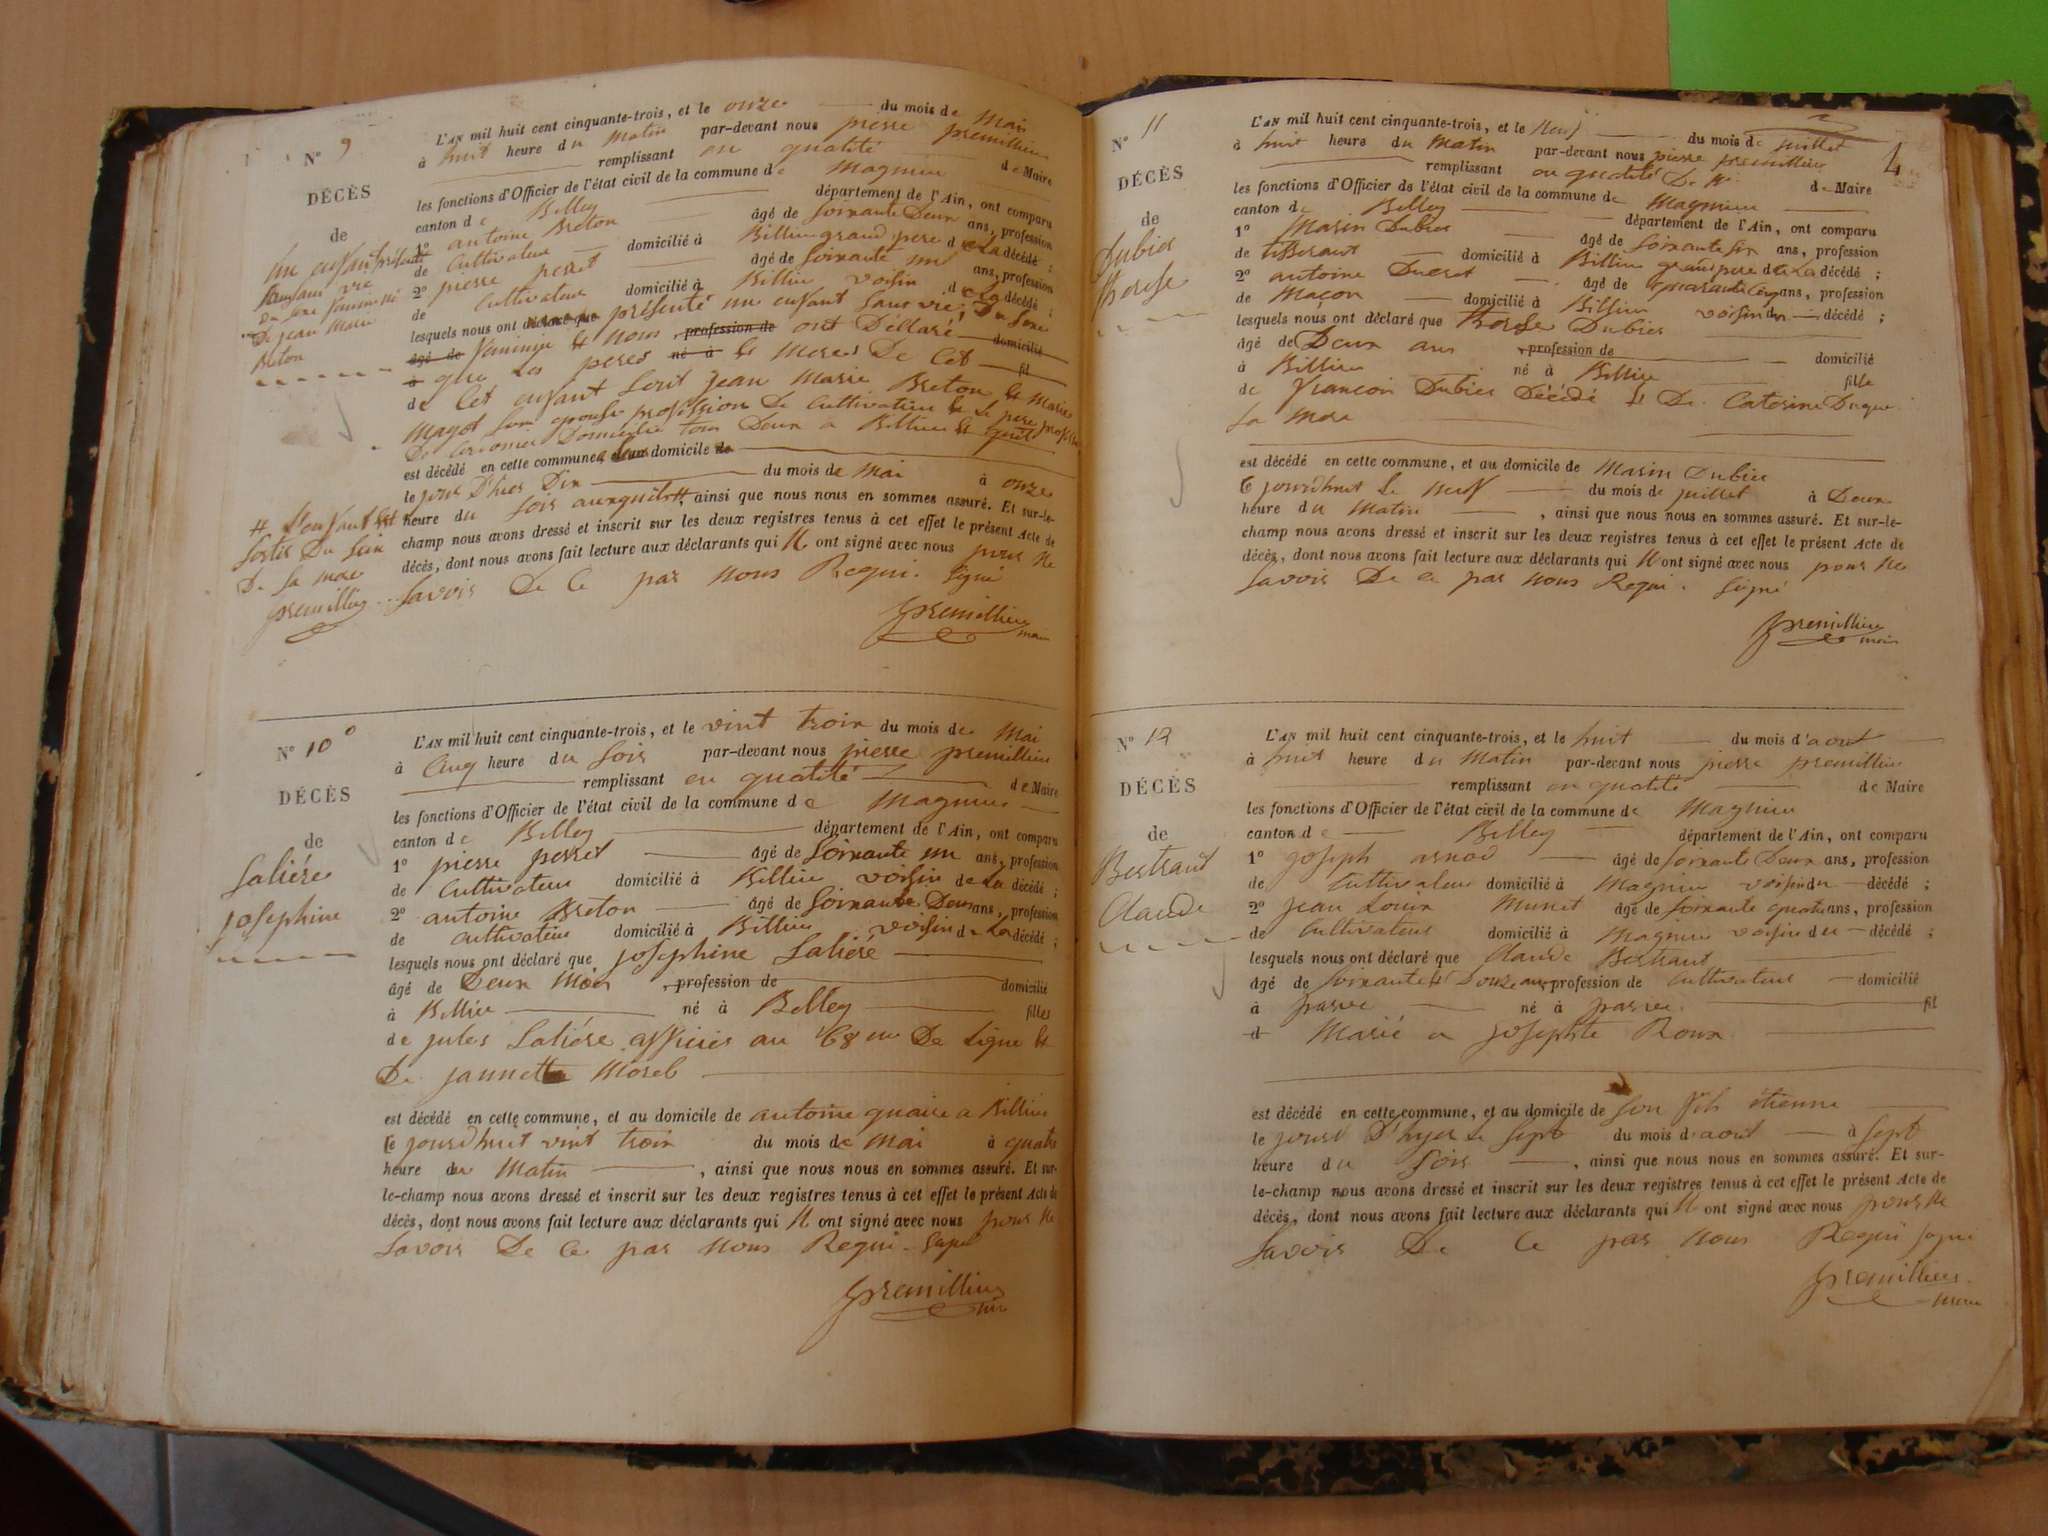 N° 9
DÉCÈS
de
un enfant présenté
sans vie
du sexe féminin
De jean Marie
Breton
L'AN mil huit cent cinquante-trois, et le onze du mois de Mai
à huit heure du Matin par-devant nous pierre premillieu
remplissant en qualité de Maire
les fonctions d'Officier de l'état civil de la commune de Magnieu
canton de Belley département de l'Ain, ont comparu
1° antoine Breton âgé de Soixante Deux ans, profession
de Cultivateur domicilié à Billieu grand pere de La décédé ;
2° pierre perret âgé de Soixante un ans, profession
de Cultivateur domicilié à Billieu voisin de La décédé ;
lesquels nous ont déclaré que présenté un enfant Sans vie, Du Sexe
âgé de feminin et nous profession de ont Déllaré domicilié
à que Les peres né à et meres De Cet fil
de Cet enfant Sont jean Marie Breton et Marie
Magot Son epouse profession De Cultivateur et Le pere
De Domicilié tous Deux a Billieu et
est décédé en cette commune, domicile de
le jour D'hier Dix du mois de Mai à onze
heure du Soir auxquels #, ainsi que nous nous en sommes assuré. Et sur-le-
champ nous avons dressé et inscrit sur les deux registres tenus à cet effet le présent Acte de
décès, dont nous avons fait lecture aux déclarants qui N ont signé avec nous pour Ne
Savoir De Ce par nous Requi. Signé
premillieu
maire
# L'enfant Est
Sortis Du Sein
De Sa mere
premillieu
N° 10
DÉCÈS
de
Saliére
josephine
L'AN mil huit cent cinquante-trois, et le vint troix du mois de Mai
à Cinq heure du Soir par-devant nous pierre premillieu
remplissant en qualité de Maire
les fonctions d'Officier de l'état civil de la commune de Magnieu
canton de Belley département de l'Ain, ont comparu
1° pierre perret âgé de Soixante un ans, profession
de Cultivateur domicilié à Billieu voisin de La décédé ;
2° antoine Breton âgé de Soixante Deux ans, profession
de Cultivateur domicilié à Billieu voisin de La décédé ;
lesquels nous ont déclaré que josephine Saliére
âgé de Deux Mois , profession de domicilié
à Billieu né à Belley filles
de jules Saliére officier au 68 me De Ligne et
De jannette Morel
est décédé en cette commune, et au domicile de antoine a Billieu
le jourdhuit vint troix du mois de Mai à quatre
heure du Matin , ainsi que nous nous en sommes assuré. Et sur-
le-champ nous avons dressé et inscrit sur les deux registres tenus à cet effet le présent Acte de
décès, dont nous avons fait lecture aux déclarants qui N ont signé avec nous pour Ne
Savoir De Ce par nous Requi. Signé
premillieu
maire
4
N° 11
DÉCÈS
de
Dubier
therese
L'AN mil huit cent cinquante-trois, et le Neuf du mois de juillet
à huit heure du Matin par-devant nous pierre premillieu
remplissant en qualité De de Maire
les fonctions d'Officier de l'état civil de la commune de Magnieu
canton de Belley département de l'Ain, ont comparu
1° Marin Dubier âgé de Soixante Six ans, profession
de tisserant domicilié à Billieu grand pere de La décédé ;
2° antoine Ducret âgé de quarante Cinq ans, profession
de Maçon domicilié à Billieu voisin du décédé ;
lesquels nous ont déclaré que therese Dubier
âgé de Deux ans , profession de domicilié
à Billieu né à Billieu fille
de françois Dubier Décédé et De Caterine
Sa Mere
est décédé en cette commune, et au domicile de Marin Dubier
le jourdhuit Le neuf du mois de juillet à Deux
heure du Matin , ainsi que nous nous en sommes assuré. Et sur-le-
champ nous avons dressé et inscrit sur les deux registres tenus à cet effet le présent Acte de
décès, dont nous avons fait lecture aux déclarants qui N ont signé avec nous pour Ne
Savoir De Ce par nous Requi. Signé
premillieu
maire
N° 12
DÉCÈS
de
Bertrant
Claude
L'AN mil huit cent cinquante-trois, et le huit du mois d'aout
à huit heure du Matin par-devant nous pierre premillieu
remplissant en qualité de Maire
les fonctions d'Officier de l'état civil de la commune de Magnieu
canton de Belley département de l'Ain, ont comparu
1° joseph arnod âgé de Soixante Deux ans, profession
de Cultivateur domicilié à Magnieu voisin du décédé ;
2° jean Louis Munet âgé de Soixante quatre ans, profession
de Cultivateur domicilié à Magnieu voisin du décédé ;
lesquels nous ont déclaré que Claude Bertrant
âgé de Soixante et Douze ans, profession de Cultivateur domicilié
à parve né à parve fil
d Marié a josephte Roux
est décédé en cette commune, et au domicile de Son fils étienne
le jour D'hyer Le Sept du mois d'aout à Sept
heure du Soir , ainsi que nous nous en sommes assuré. Et sur-
le-champ nous avons dressé et inscrit sur les deux registres tenus à cet effet le présent Acte de
décès, dont nous avons fait lecture aux déclarants qui N ont signé avec nous pour Ne
Savoir De Ce par nous Requi Signé
premillieu
maire